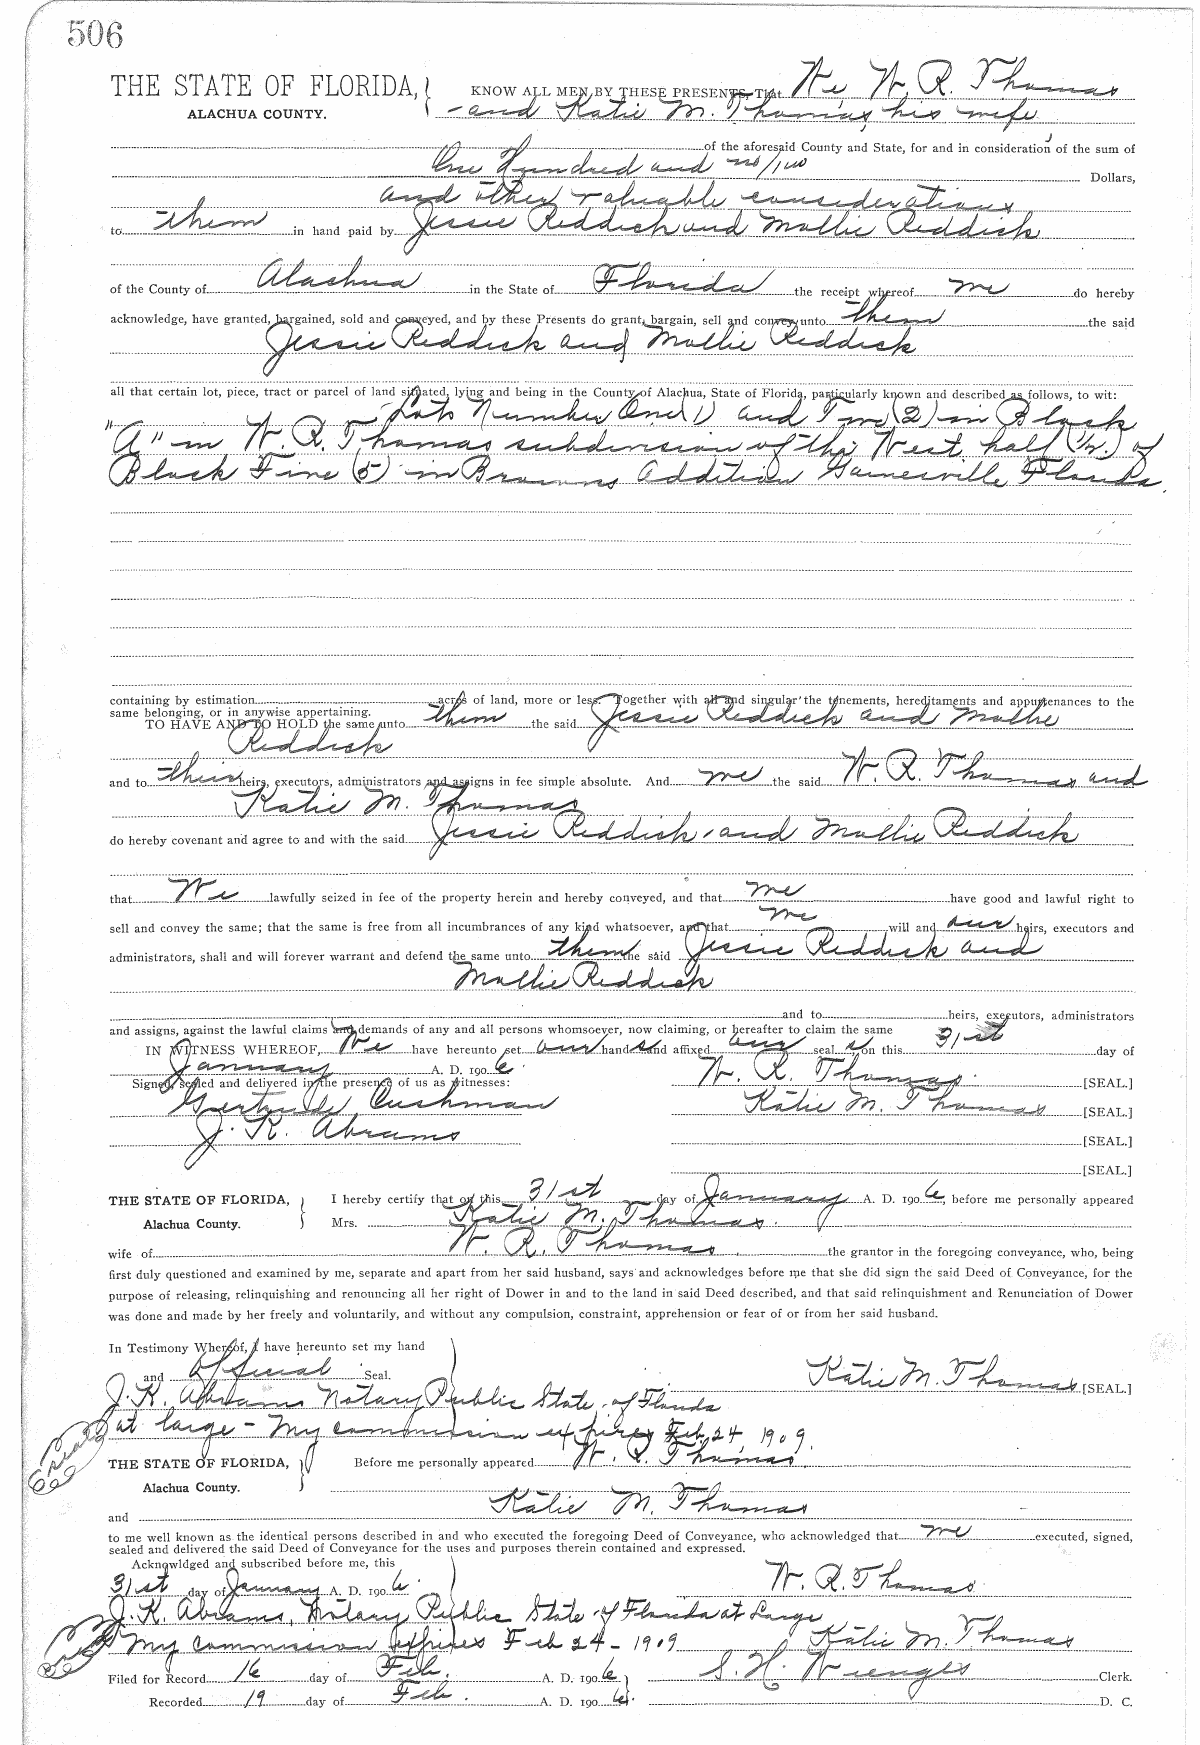 506
THE STATE OF FLORIDA, KNOW ALL MEN BY THESE PRESENTS, That We, W. R. Thomas
ALACHUA COUNTY. and Katie M. Thomas, his wife
of the aforesaid County and State, for and in consideration of the sum of
One Hundred and no/100 Dollars,
and other valuable considerations
to them in hand paid by Jessie Reddick and Mollie Reddick
of the County of Alachua in the State of Florida the receipt whereof we do hereby
acknowledge, have granted, bargained, sold and conveyed, and by these Presents do grant, bargain, sell and convey unto them the said
Jessie Reddick and Mollie Reddick
all that certain lot, piece, tract or parcel of land situated, lying and being in the County of Alachua, State of Florida, particularly known and described as follows, to wit:
Lots Number One (1) and Two (2) in Block
"A" in W. R. Thomas subdivision of the West half (½) of
Block Five (5) in Browns Addition Gainesville Florida.
containing by estimation acres of land, more or less. Together with all and singular the tenements, hereditaments and appurtenances to the
same belonging, or in anywise appertaining.
TO HAVE AND TO HOLD the same unto them the said Jessie Reddick and Mollie
Reddick
and to their heirs, executors, administrators and assigns in fee simple absolute. And we the said W. R. Thomas and
Katie M. Thomas
do hereby covenant and agree to and with the said Jessie Reddick and Mollie Reddick
that We lawfully seized in fee of the property herein and hereby conveyed, and that we have good and lawful right to
sell and convey the same; that the same is free from all incumbrances of any kind whatsoever, and that we will and our heirs, executors and
administrators, shall and will forever warrant and defend the same unto them the said Jessie Reddick and
Mollie Reddick
and to heirs, executors, administrators
and assigns, against the lawful claims and demands of any and all persons whomsoever, now claiming, or hereafter to claim the same
IN WITNESS WHEREOF, We have hereunto set our hands and affixed our seals on this 31st day of
January A. D. 1906.
Signed, sealed and delivered in the presence of us as witnesses: W. R. Thomas [SEAL.]
Gertrude Cushman Katie M. Thomas [SEAL.]
J. K. Abrams [SEAL.]
[SEAL.]
THE STATE OF FLORIDA, I hereby certify that on this 31st day of January A. D. 1906, before me personally appeared
Alachua County. Mrs. Katie M. Thomas.
wife of W. R. Thomas the grantor in the foregoing conveyance, who, being
first duly questioned and examined by me, separate and apart from her said husband, says and acknowledges before me that she did sign the said Deed of Conveyance, for the
purpose of releasing, relinquishing and renouncing all her right of Dower in and to the land in said Deed described, and that said relinquishment and Renunciation of Dower
was done and made by her freely and voluntarily, and without any compulsion, constraint, apprehension or fear of or from her said husband.
In Testimony Whereof, I have hereunto set my hand
and official Seal. Katie M. Thomas [SEAL.]
J. K. Abrams Notary Public State of Florida
at large - My commission expires Feb. 24, 1909.
THE STATE OF FLORIDA, Before me personally appeared W. R. Thomas
Alachua County.
and Katie M. Thomas
to me well known as the identical persons described in and who executed the foregoing Deed of Conveyance, who acknowledged that we executed, signed,
sealed and delivered the said Deed of Conveyance for the uses and purposes therein contained and expressed.
Acknwldged and subscribed before me, this
31st day of January A. D. 1906. W. R. Thomas
J. K. Abrams, Notary Public State of Florida at Large
My commission expires Feb 24 - 1909 Katie M. Thomas
Filed for Record 16 day of Feb. A. D. 1906 S. H. Wienges Clerk.
Recorded 19 day of Feb. A. D. 1906. D. C.